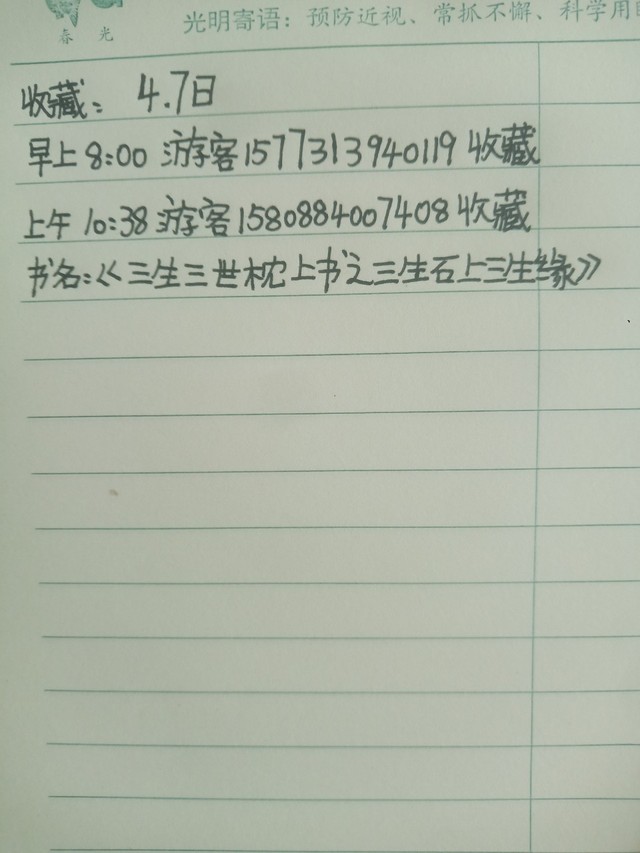 春 光
光明寄语：预防近视、常抓不懈、科学用
收藏：4.7日
早上8:00 游客1577313940119收藏
上午10:38游客1580884007408收藏
书名:《三生三世枕上书之三生石上三生缘》